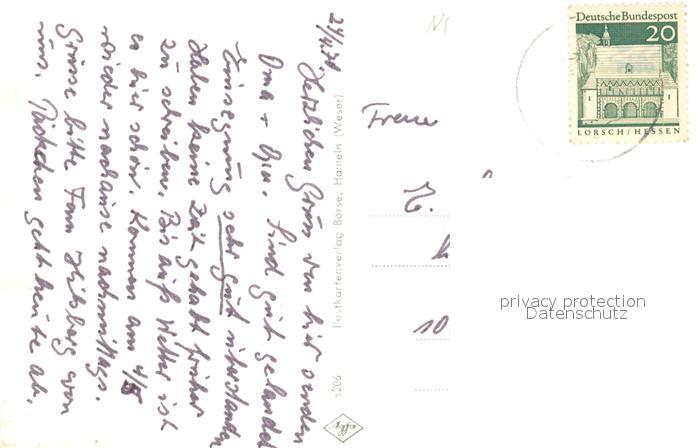 24/4.70.
Herzlichen Gruss von hier senden
Oma + Opa. Sind gut gelandet
Einsegnung sehr gut überstanden
Haben keine Zeit gehabt früher
zu schreiben. Bis aufs Wetter ist
es hier schön. Kommen am 4/5
wieder nachause nachmittags.
Grüsse bitte Fam von
uns. geht heute ab.
Postkartenverlag Börse, Hameln (Weser)
s206
agfa
Deutsche Bundespost
20
LORSCH/HESSEN
H.
10
privacy protection
Datenschutz